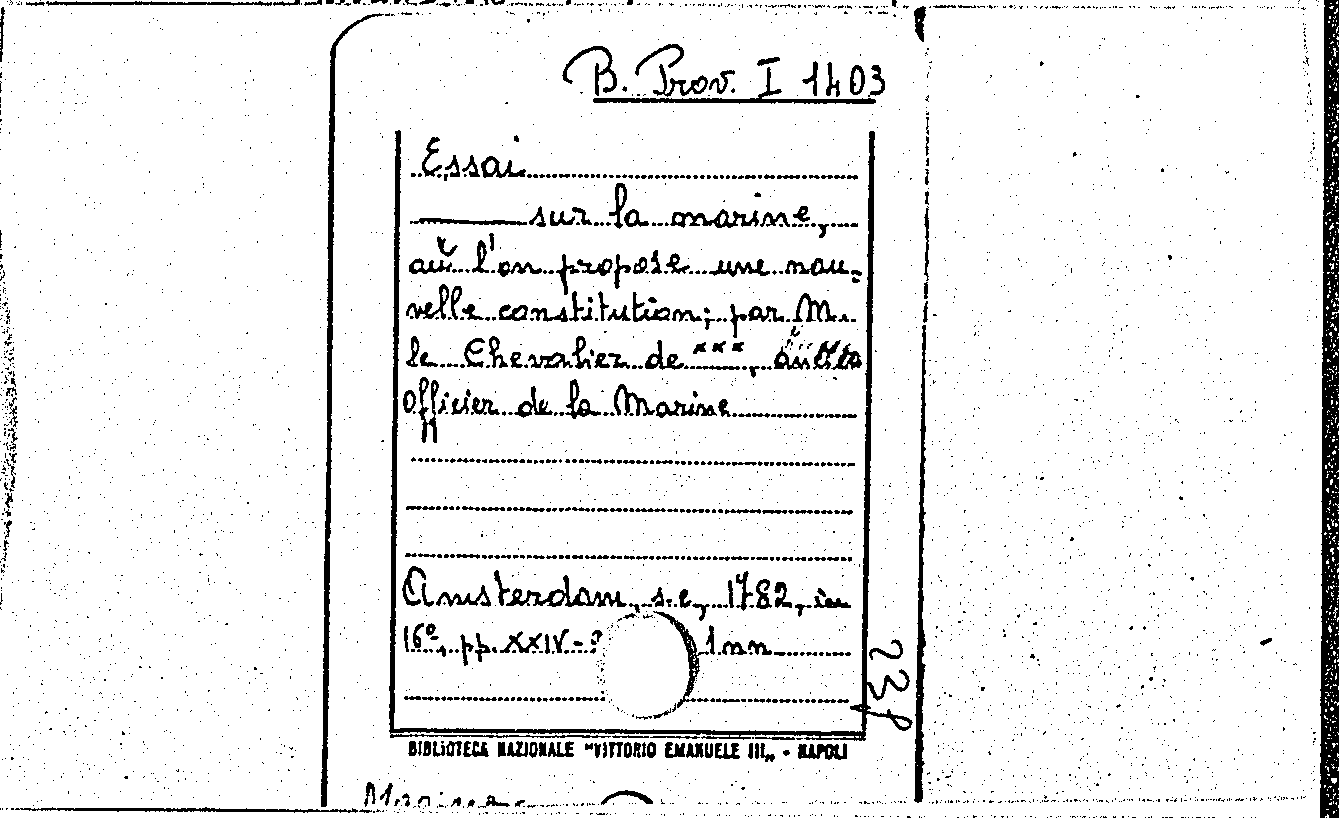 B. Prov. I 1403
Essai
sur la marine,
où l'on propose une nou=
velle constitution; par M.
le Chevalier de ***,
Officier de la Marine
Amsterdam, s.e, 1782, in
16°, pp. XXIV-
1 nn
BIBLIOTECA NAZIONALE "VITTORIO EMANUELE III„ - NAPOLI